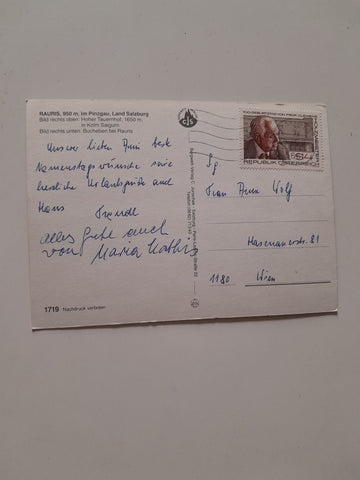 RAURIS, 950 m, im Pinzgau, Land Salzburg
Bild rechts oben: Hoher Tauernhof, 1650 m,
in Kolm Saigurn
Bild rechts unten: Bucheben bei Rauris
Unserer lieben Anni beste
Namenstagswünsche sowie
herzliche Urlaubsgrüße und
Hans
alles Gute auch
von Maria
1719 Nachdruck verboten
REPUBLIK ÖSTERREICH
Frau Anna Wolf
81
1180 Wien